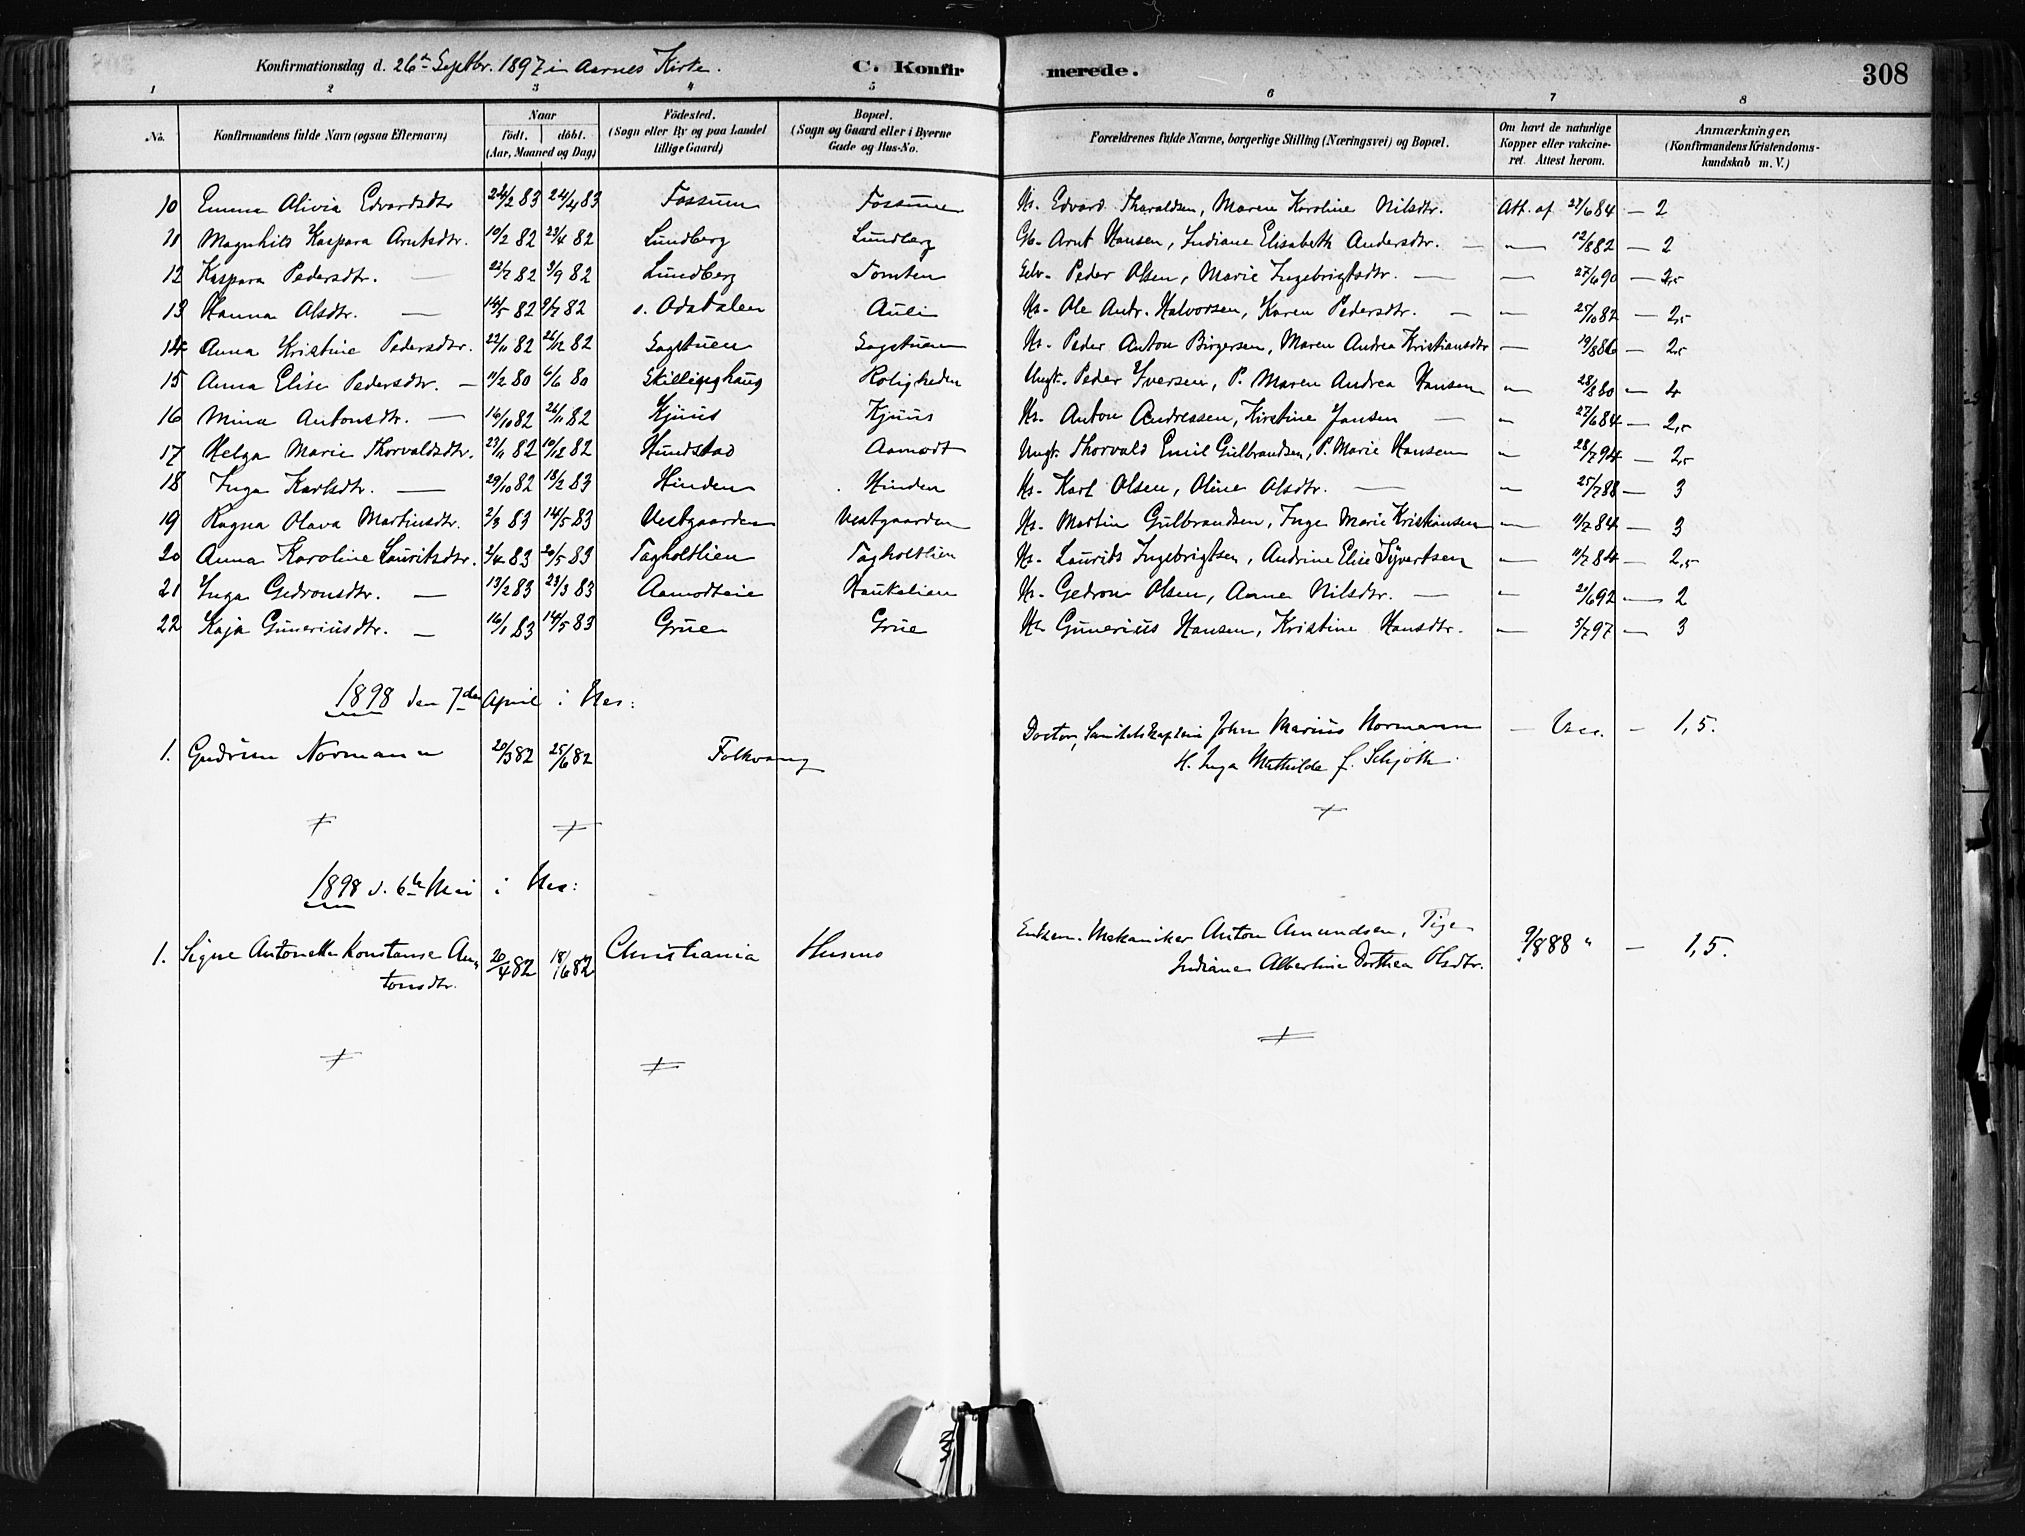 Konfirmationsdag d. 26de Septbr. 1897 i Aarnes Kirke. C. Konfirmerede. 308
1 2 3 4 5 6 7 8
No. Konfirmandens fulde Navn (ogsaa Efternavn) Naar födt. döbt. (Aar, Maaned og Dag) Födested. (Sogn eller By og paa Landet tillige Gaard) Bopæl. (Sogn og Gaard eller i Byerne Gade og Hus-No. Forældrenes fulde Navne, borgerlige Stilling (Næringsvei) og Bopæl. Om havt de naturlige Kopper eller vakcineret. Attest herom. Anmærkninger. (Konfirmandens Kristendomskundskab m. V.)
10 Emma Olivia Edvardsdtr 24/2 83 24/4 83 Fossum Fossum Hr. Edvard Tharaldsen, Maren Karoline Nilsdtr. Att. af 27/6 84 — 2
11 Magnhild Kaspara Arntsdtr. 10/2 82 23/4 82 Lundberg Lundberg Gb. Arnt Hansen, Indiane Elisabeth Andersdtr. — — 12/8 82 — 2
12 Kaspara Pedersdtr. — 22/7 82 3/9 82 Lundberg Tomten Selv. Peder Olsen, Marie Ingebrigtsdtr. — — 27/6 90 — 2,5
13 Hanna Olsdtr. — 14/5 82 9/7 82 s. Odalen Auli Hr. Ole Andr. Halvorsen, Karen Pedersdtr. — — 25/10 82 — 2,5
14 Anna Kristine Pedersdtr. 22/11 82 26/12 82 Sagstuen Sagstuen Hr. Peder Anton Birgersen, Maren Andrea Kristiansdtr — 19/8 86 — 2,5
15 Anna Elise Pedersdtr. — 11/2 80 6/6 80 Skillingshaug Roligheden Ungk. Peder Iversen, P. Maren Andrea Hansen — 28/8 80 — 4
16 Mina Antonsdtr. — 16/10 82 26/11 82 Kjuus Kjuus Hr. Anton Andressen, Kirstine Jansen — — 27/6 84 — 2,5
17 Helga Marie Thorvaldsdtr. 23/11 82 10/12 82 Hundstad Aamodt Ungk. Thorvald Emil Gulbrandsen, P. Marie Hansen — 28/7 94 — 2,5
18 Inga Karlsdtr. — 29/10 82 18/2 83 Hinden Hinden Hr. Karl Olsen, Oline Olsdtr. — — 25/7 88 — 3
19 Ragna Olava Martinsdtr. 2/3 83 14/5 83 Vestgaarden Vestgaarden Hr. Martin Gulbrandsen, Inge Marie Kristiansen — 11/7 84 — 3
20 Anna Karoline Lauritsdtr. 2/4 83 20/5 83 Tagholtlien Tagholtlien Hr. Laurids Ingebrigtsen, Andrine Elise Syvertsen — 11/7 84 — 2,5
21 Inga Gedronsdtr. — 13/2 83 23/3 83 Aamodteie Haukelien Hr. Gedron Olsen, Anne Nilsdtr. — — 21/6 92 — 2
22 Kaja Guneriusdtr. — 16/1 83 14/5 83 Grue Grue Hr Gunerius Hansen, Kristine Hansdtr. — 5/7 97 — 3
1898 den 7de April i Nes:
1. Gudrun Normann 20/3 82 25/6 82 Folkvang Doctor, Sanitetskaptein Johan Marius Normann — Vacc. — 1,5.
H. Inga Mathilde f. Schjøth.
1898 d. 6te Mai i Nes:
1. Signe Antonette Konstanse An- 20/4 82 18/6 82 Christiania Husmo Enkem. Mekaniker Anton Amundsen, Pige 9/8 88 " — 1,5.
tonsdtr. Indiane Albertine Dorthea Olsdtr.